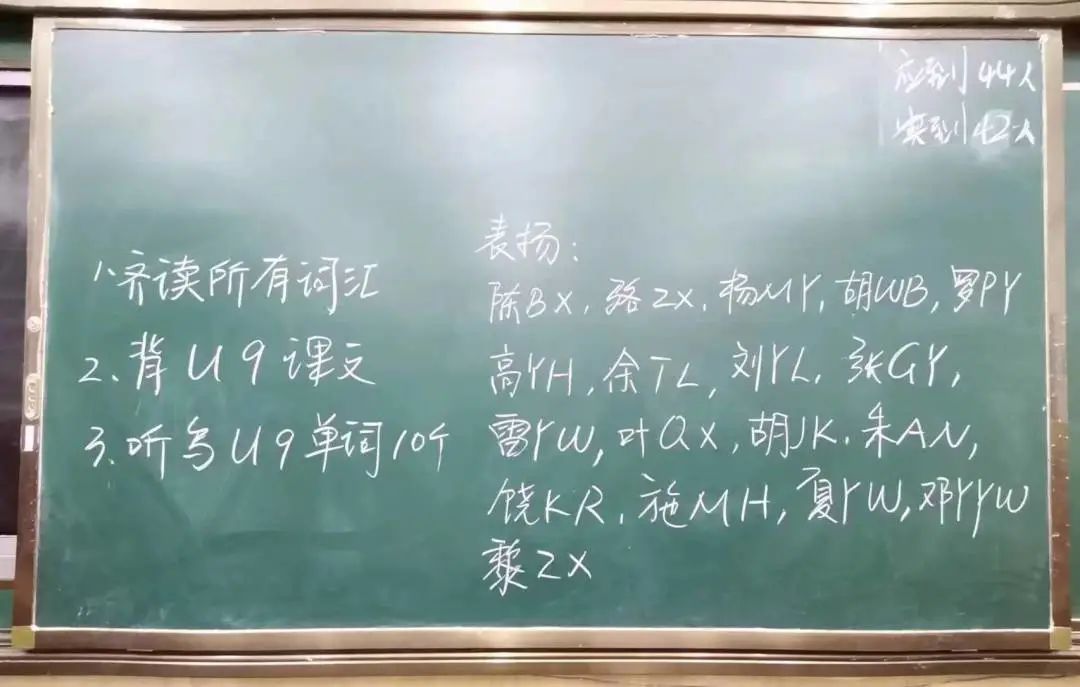 应到44人
实到42人
1.齐读所有词汇
2.背U9课文
3.听写U9单词10个
表扬:
陈BX,骆ZX,杨MY,胡WB,罗PY
高YH,余TL,刘YL,张GY,
雷YW,叶QX,胡JK.朱AN,
饶KR,施MH,夏YW,邓YYW
黎ZX